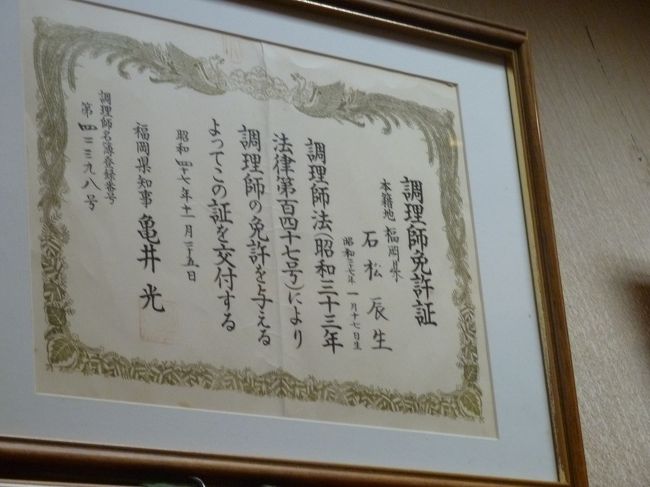 調理師免許証
本籍地 福岡県
石松辰生
昭和二七年一月十七日生
調理師法(昭和三十三年
法律第百四十七号)により
調理師の免許を与える
よってこの証を交付する
昭和四十七年十一月二十五日
福岡県知事 亀井光
調理師名簿登録番号
第四二三九八号